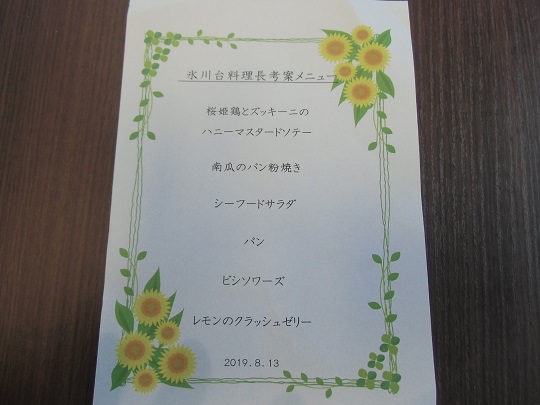 氷川台料理長考案メニュー
桜姫鶏とズッキーニの
ハニーマスタードソテー
南瓜のパン粉焼き
シーフードサラダ
パン
ビシソワーズ
レモンのクラッシュゼリー
2019.8.13